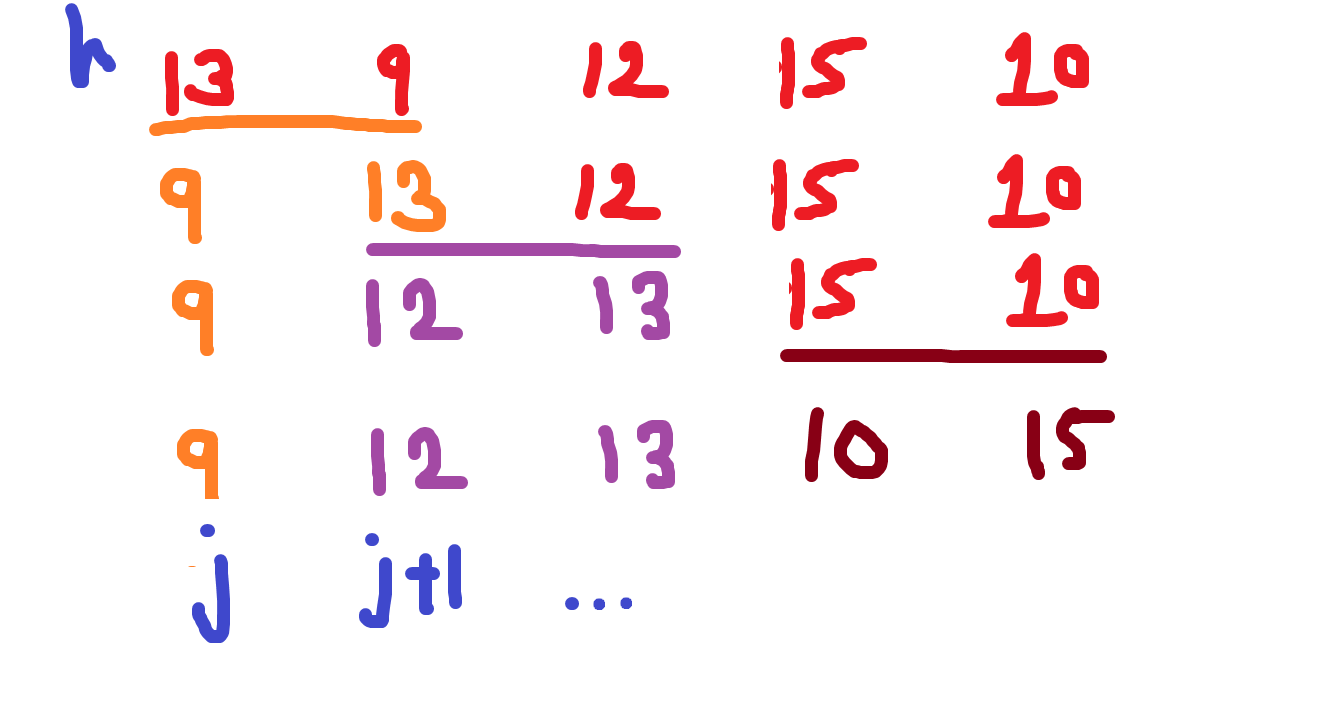 h 13 9 12 15 10
9 13 12 15 10
9 12 13 15 10
9 12 13 10 15
j j+1 ...